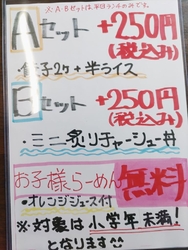 ※A.Bセットは平日ランチのみです。
Aセット +250円
(税込み)
餃子2ヶ+半ライス
Bセット +250円
(税込み)
・ミニ炙りチャーシュー丼
お子様らーめん 無料
・オレンジジュース付
※対象は小学年未満!
となります